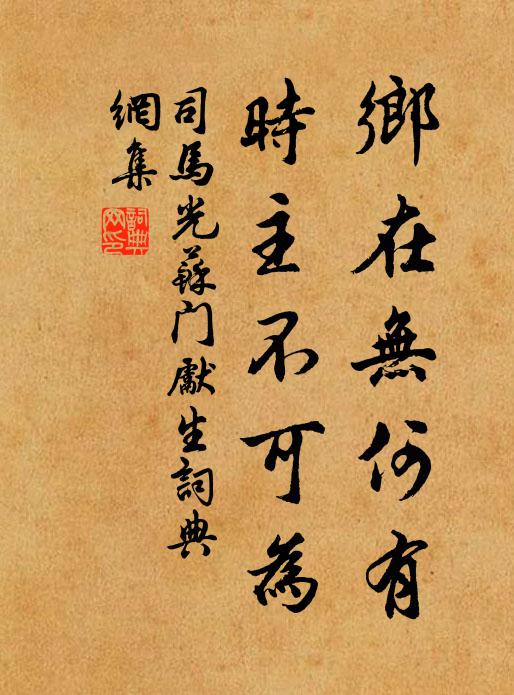 鄉在無何有
時主不可為
司馬光蘇門獻生詞典
網集
詞典
網印